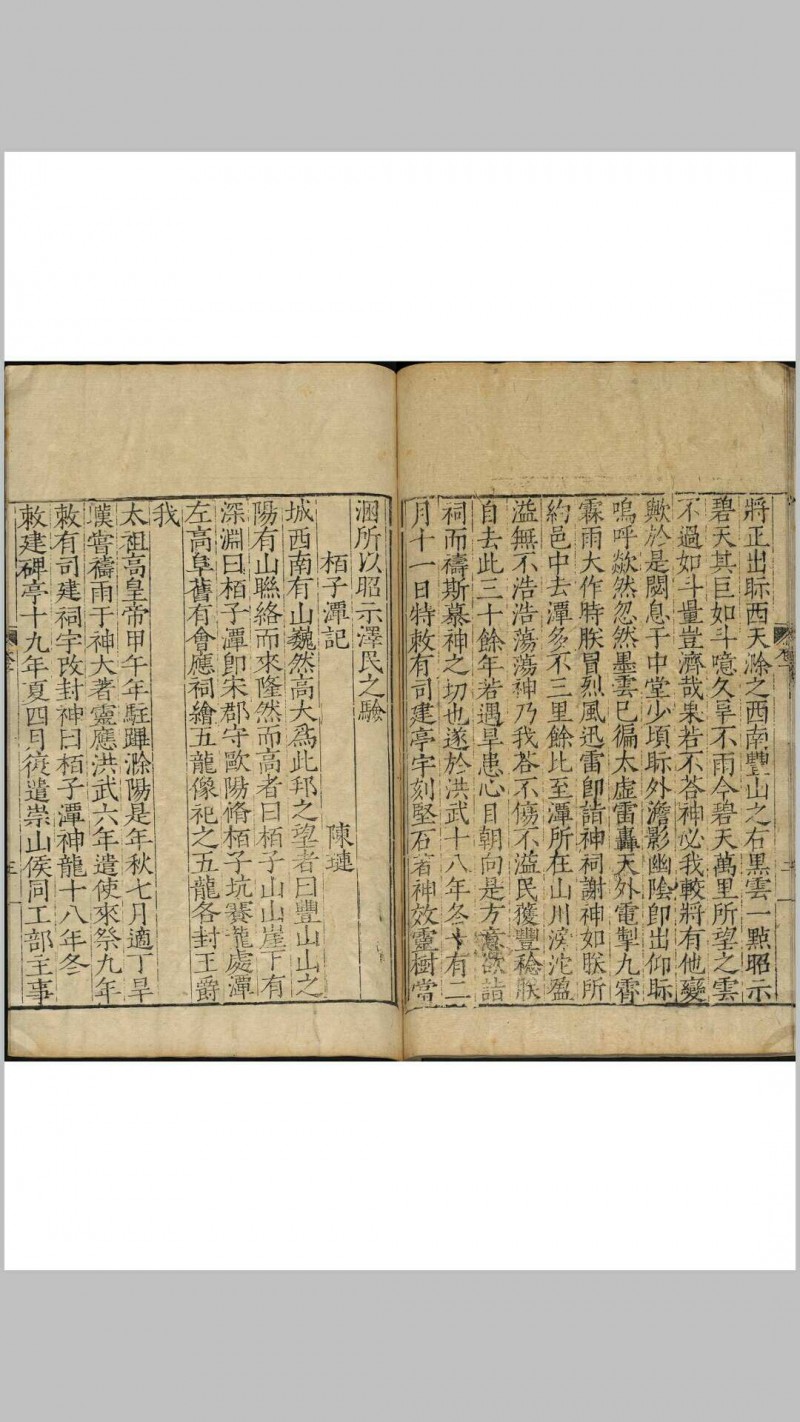 將正出眎西天滁之西南豐山之右黑雲一點昭示
碧天其巨如斗噫久旱不雨今碧天萬里所望之雲
不過如斗量豈濟哉果若不荅神必我較將有他變
歟於是閟息于中堂少頃眎外澹影幽陰卽出仰眎
嗚呼歘然忽然墨雲已徧太虛雷轟天外電掣九霄
霖雨大作時朕冒烈風迅雷卽詣神祠謝神如朕所
約邑中去潭多不三里餘比至潭所在山川滂沱盈
溢無不浩浩蕩蕩神乃我荅不傷不溢民獲豐稔朕
自去此三十餘年若遇旱患心目朝向是方意欲詣
祠而禱斯慕神之切也遂於洪武十八年冬十有二
月十一日特敕有司建亭宇刻堅石著神效靈樹當
淵所以昭示澤民之驗
栢子潭記 陳璉
城西南有山巍然高大爲此邦之望者曰豐山山之
陽有山聯絡而來隆然而高者曰栢子山山崖下有
深淵曰栢子潭卽宋郡守歐陽脩栢子坑賽龍處潭
左高阜舊有會應祠繪五龍像祀之五龍各封王爵
我
太祖高皇帝甲午年駐蹕滁陽是年秋七月適丁旱
暵甞禱雨于神大著靈應洪武六年遣使來祭九年
敕有司建祠宇改封神曰栢子潭神龍十八年冬
敕建碑亭十九年夏四月復遣崇山侯同工部主事